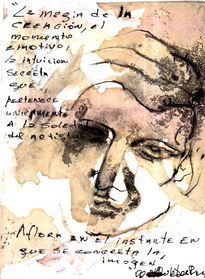 "La magia de la
creación, el
momento
emotivo,
la intuición
secreta
que
pertenece
únicamente
a la soledad
del artista
Aflora en el instante en
que se concreta la
imagen